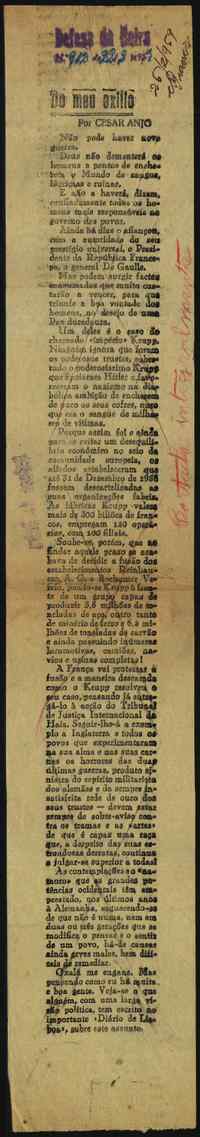 Defesa da Beira
Do meu exílio
Por CESAR ANJO
Não pode haver nova
guerra.
Deus não dementará os
homens a pontos de enche-
rem o Mundo de sangue,
lágrimas e ruínas.
E não a haverá, dizem,
confiadamente todos os ho-
mens mais responsáveis no
governo dos povos.
Ainda há dias o afiançou,
com a autoridade do seu
prestígio universal, o Presi-
dente da República France-
sa, o general De Gaulle.
Mas podem surgir factos
que muito cus-
tarão a vencer, para que
triunfe a boa vontade dos
homens, no desejo de uma
Paz duradoura.
Um deles é o caso do
chamado «império» Krupp.
Ninguém ignora que foram
os poderosos trusts, sobre-
tudo o poderosíssimo Krupp
que apoiaram Hitler e
o nazismo na dia-
bólica ambição de enchar-
de ouro os seus cofres, mes-
mo que era o sangue de milha-
res de vítimas.
Porque assim foi e ainda
para se evitar um desequilí-
brio económico no seio da
comunidade europeia, os
aliados estabeleceram que
até 31 de Dezembro de 1958
fossem descartelizadas as
suas organizações fabris.
As fábricas Krupp valem
mais de 300 biliões de fran-
cos, empregam 120 operá-
rios, com 100 filiais.
Soube-se, porém, que ao
findar aquele prazo se aca-
bava de decidir a fusão dos
estabelecimentos Reinhau-
sen, A. G. e Bochumer Ve-
rein, pondo-se Krupp à fren-
te de um grupo capaz de
produzir 3,6 milhões de to-
neladas de aço, outro tanto
de minério de ferro e 6,2 mi-
lhões de toneladas de carvão
e ainda possuindo inúmeras
locomotivas, camiões, na-
vios e usinas completas!
A França vai protestar à
fusão e a maneira descarada
como o Krupp resolveu o
seu caso, pensando já sujei-
tá-lo à acção do Tribunal
de Justiça Internacional de
Haia. Seguir-lhe-á o exem-
plo a Inglaterra e todos os
povos que experimentaram
na sua alma e nas suas car-
nes os horrores das duas
últimas guerras, produto gi-
nésico do espírito militarista
dos alemães e da sempre in-
satisfeita sede de ouro dos
seus trusts — devem estar
sempre de sobre-aviso con-
tra as tramas e as partes
de que é capaz uma raça
que, a despeito das suas es-
trondosas derrotas, continua
a julgar-se superior a todas!
As contemplações
que as grandes po-
tências ocidentais têm em-
prestado, nos últimos anos
à Alemanha, esquecendo-se
de que não é numa, nem em
duas ou três gerações que se
modifica o pensar e o sentir
de um povo, há-de causar
ainda graves males, bem difí-
ceis de remediar.
Oxalá me engane. Mas
pensando como eu há muita
e boa gente. Veja-se o que
alguém, com uma larga vi-
são política, tem escrito no
importante «Diário de Lis-
boa», sobre este assunto.